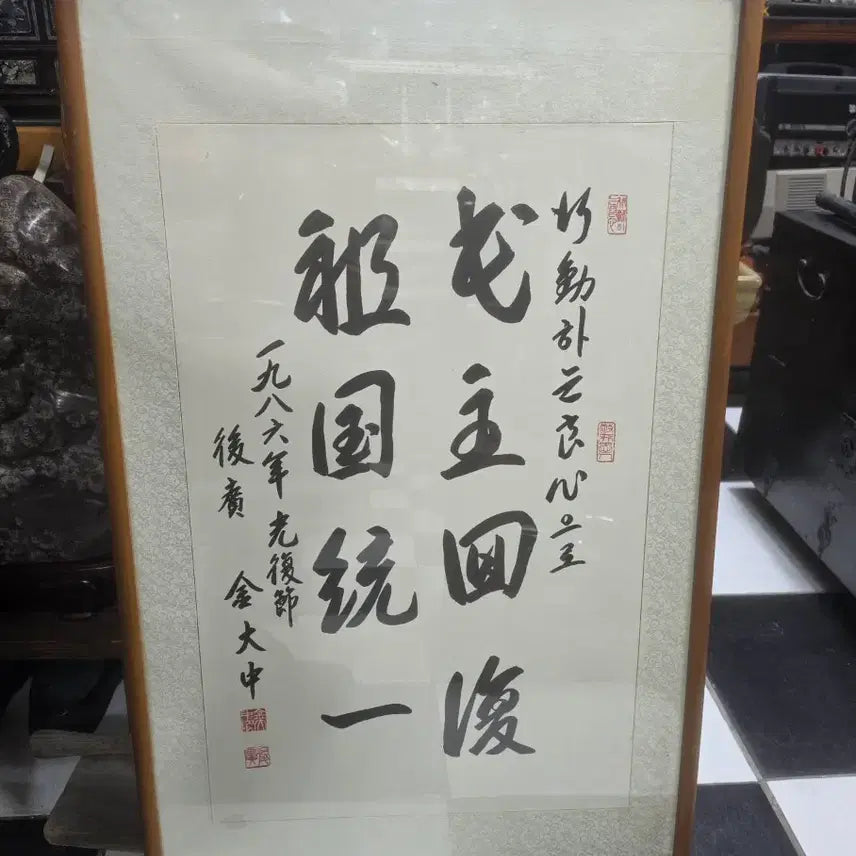 行動하는良心으로
民主回復
祖国統一
一九八六年 光復節
後廣 金大中